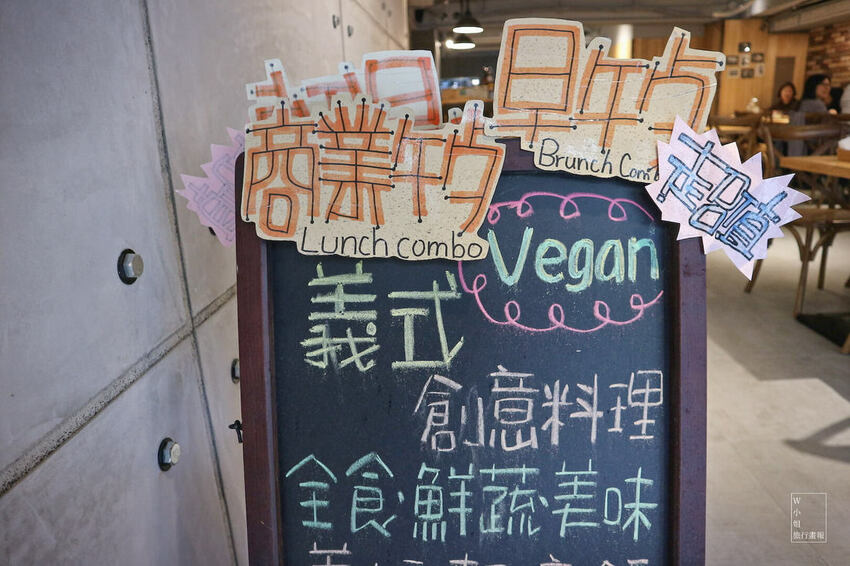 早午夕
Brunch Com
商業午夕
Lunch combo
超值
Vegan
義式
創意料理
全食鮮蔬美味
W
小
姐
旅行畫報